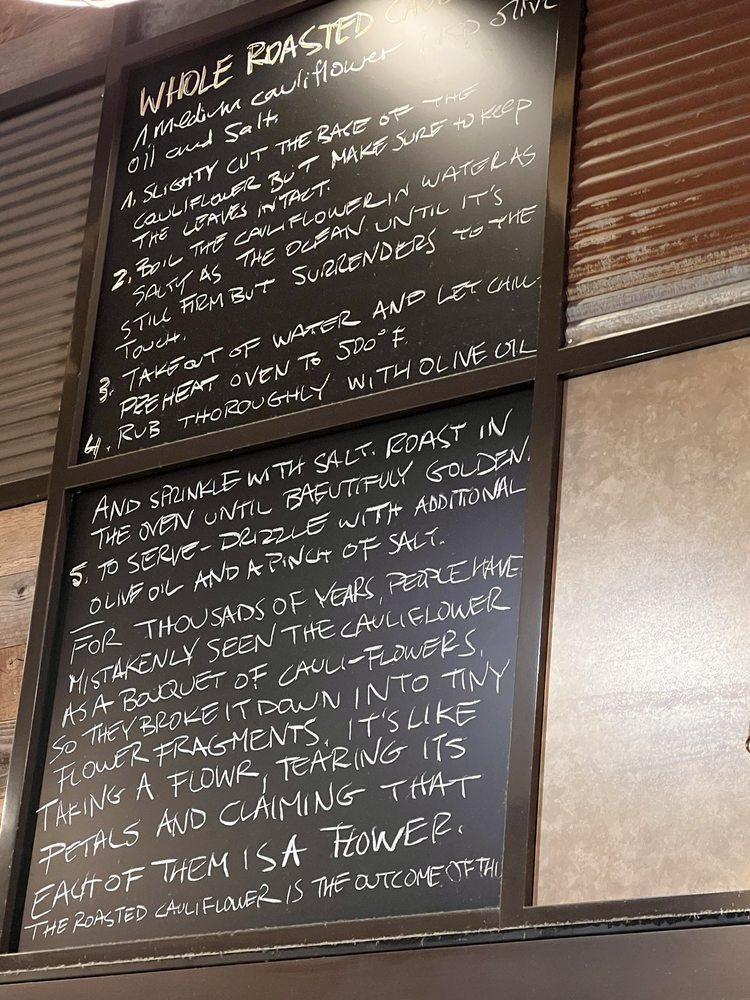 WHOLE ROASTED
1 medium cauliflower AND OLIVE
oil and salt
1. SLIGHTY CUT THE BASE OF THE
CAULIFLOWER BUT MAKE SURE TO KEEP
THE LEAVES INTACT.
2. BOIL THE CAULIFLOWER IN WATER AS
SALTY AS THE OCEAN UNTIL IT'S
STILL FIRM BUT SURRENDERS TO THE
TOUCH.
3. TAKE OUT OF WATER AND LET CHILL.
PREHEAT OVEN TO 500° F.
4. RUB THOROUGHLY WITH OLIVE OIL
AND SPRINKLE WITH SALT. ROAST IN
THE OVEN UNTIL BAEUTIFULY GOLDEN.
5. TO SERVE - DRIZZLE WITH ADDITIONAL
OLIVE OIL AND A PINCH OF SALT.
FOR THOUSADS OF YEARS, PEOPLE HAVE
MISTAKENLY SEEN THE CAULIFLOWER
AS A BOUQUET OF CAULI-FLOWERS,
SO THEY BROKE IT DOWN INTO TINY
FLOWER FRAGMENTS. IT'S LIKE
TAKING A FLOWR, TEARING ITS
PETALS AND CLAIMING THAT
EACH OF THEM IS A FLOWER.
THE ROASTED CAULIFLOWER IS THE OUTCOME OF THI